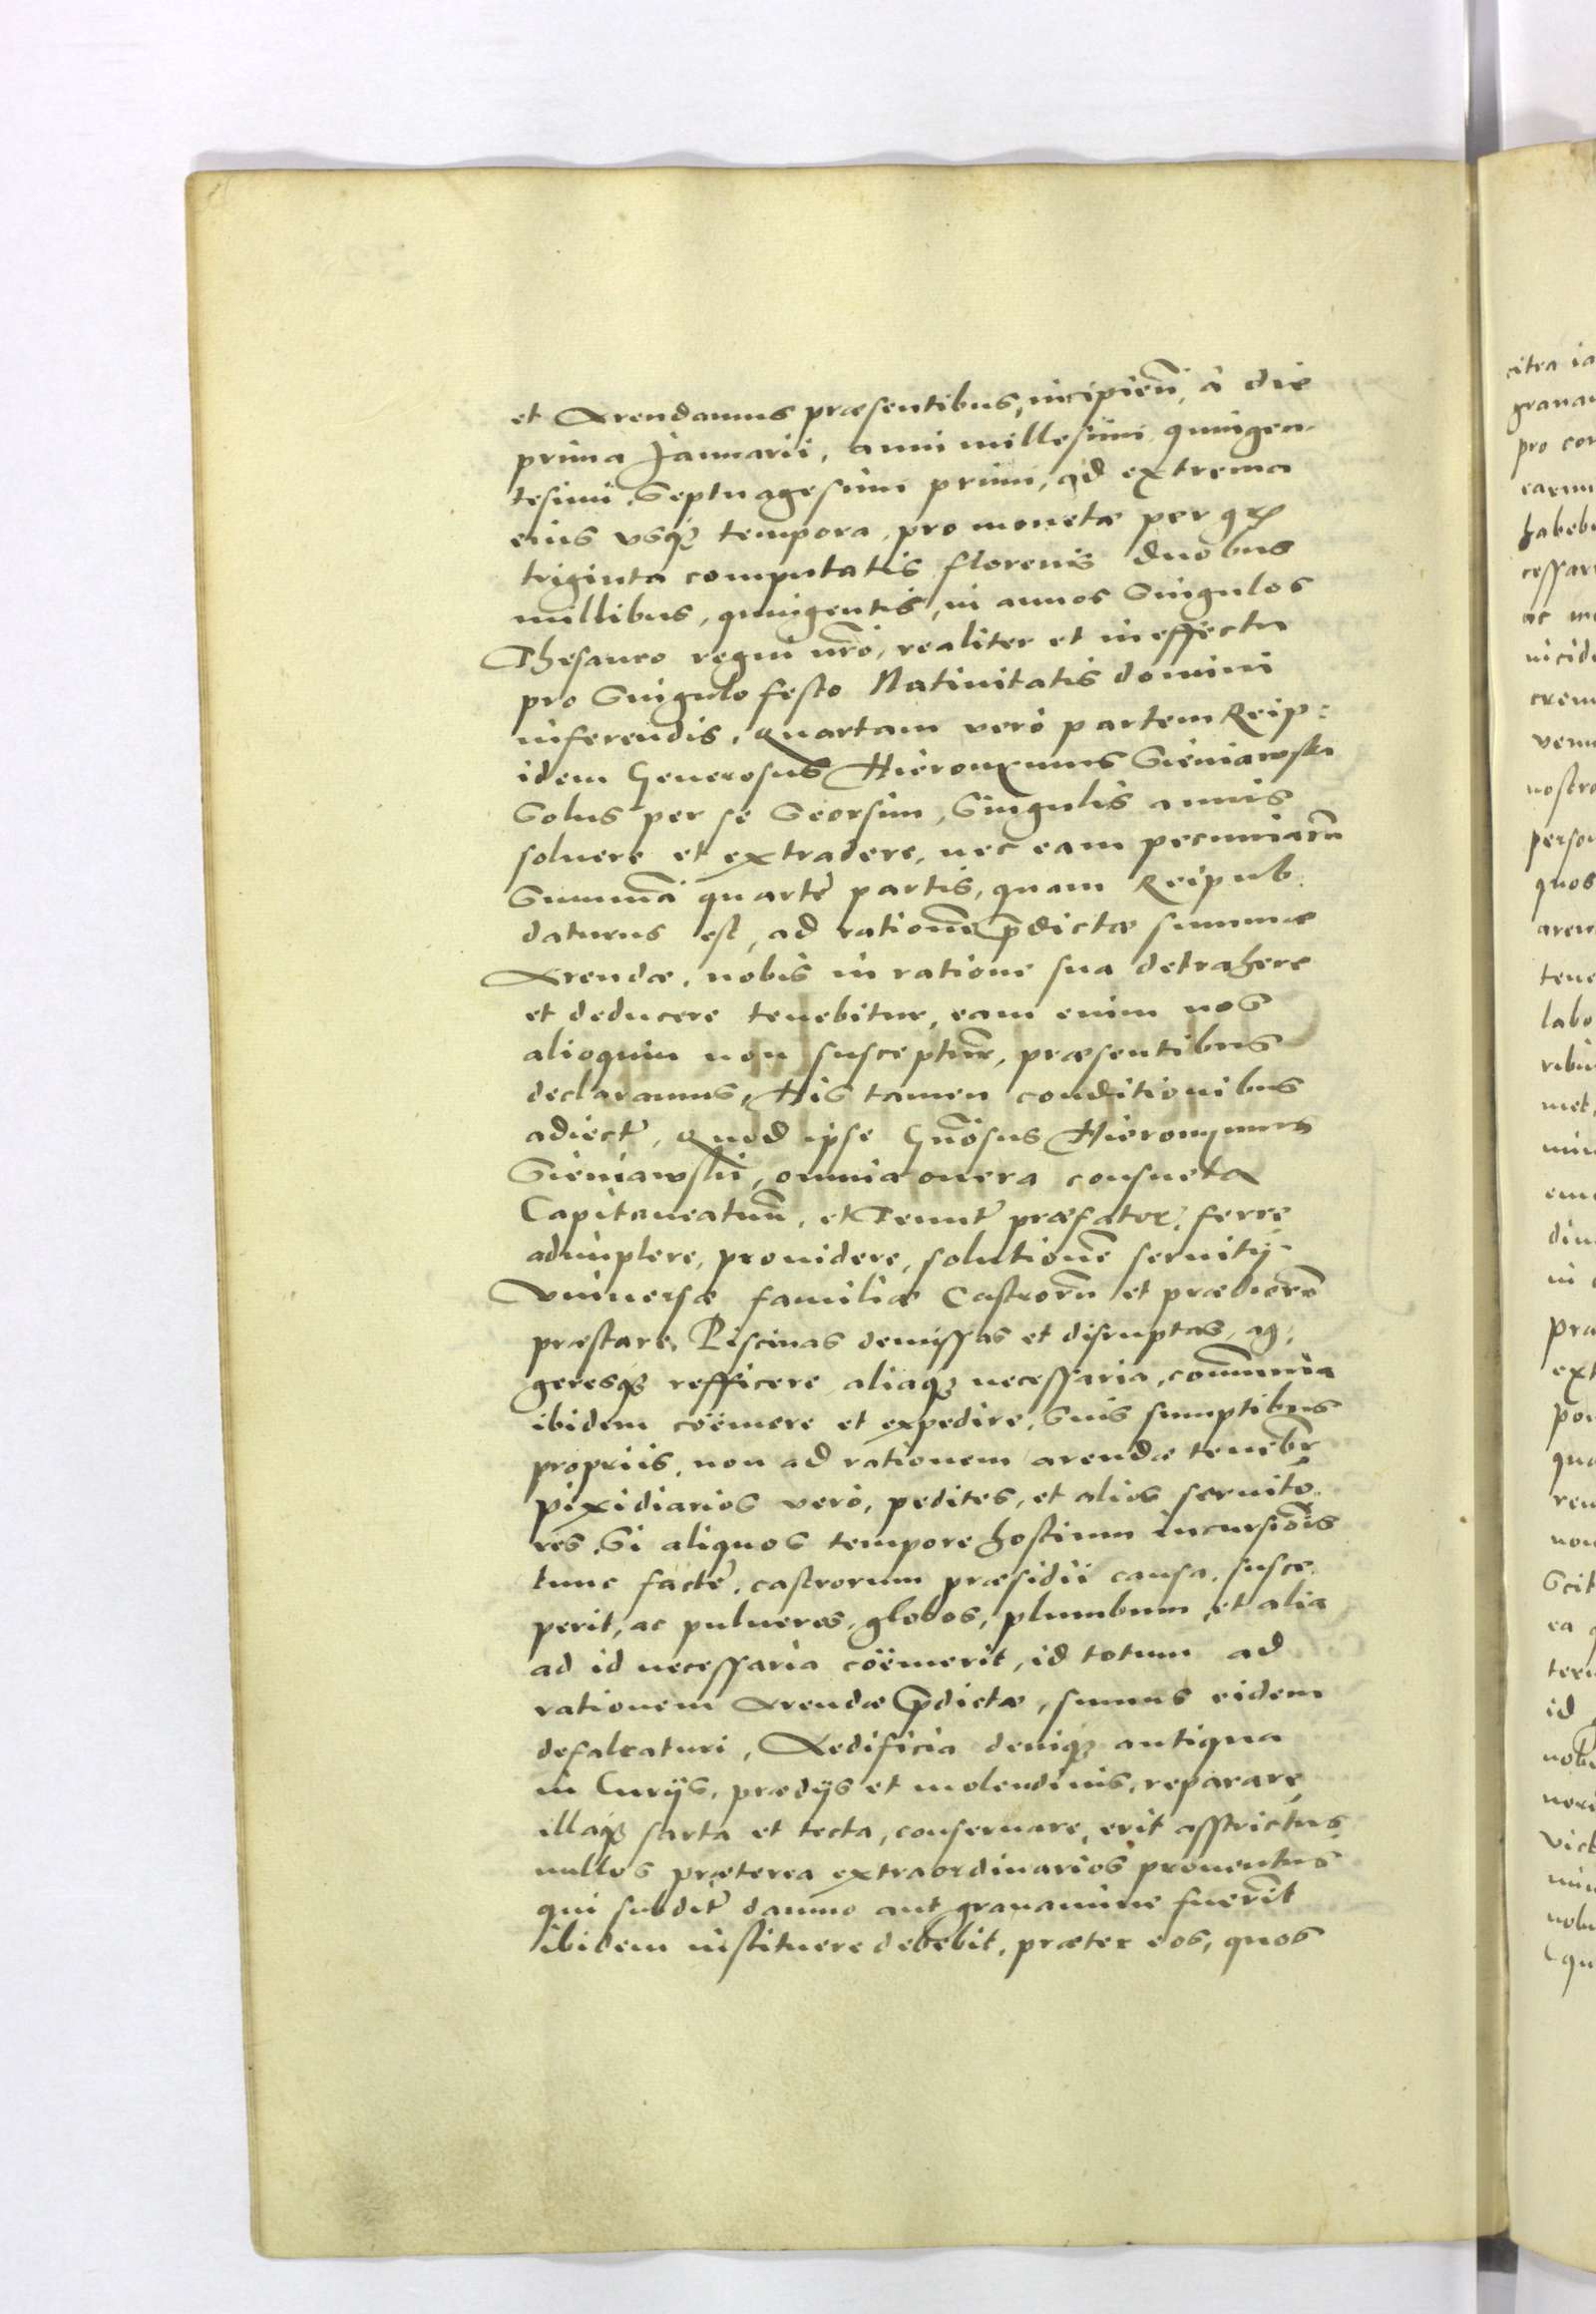 et Arendamus præsentibus, incipien̄. à die
prima Januarii, anni millesimi quingen-
tesimi Septuagesimi primi, ad extrema
eius usq3 tempora, pro monetæ per gr̄
triginta computatis florenis duobus
millibus, quingentis, in annos Singulos
Thesauro regni nr̄o, realiter et in effectu
pro Singulo festo Natiuitatis domini
inferendis. Quartam verò partem Reip:
idem Generosus Hieronymus Sieniawski
Solus per se Seorsim, Singulis annis
soluere et extradere, nec eam pecuniarū
Summā quarte partis, quam Reipub.
daturus est, ad rationē p̄dictæ summæ
Arendæ, nobis in ratione sua detrahere
et deducere tenebitur, eam enim nos
alioquin non susceptur, præsentibus
declaramus, His tamen conditionibus
adiect̄, Quod ipse Gn̄osus Hieronymus
Sieniawski, omnia onera consueta
Capitaneatuū, et Tenut̄ præfator, ferre
adimplere, prouidere, solutionē seruitij
Vniuersæ familiæ Castrorū et prædiorū
præstare, Piscinas demissas et disruptas, ag-
geresq3 refficere aliaq3 necessaria, com̄unia
ibidem coëmere et expedire, Suis sumptibus
propriis, non ad rationem arendæ tenebr̄
pixidiarios verò, pedites, et alios seruito-
res, Si aliquos tempore hostium incursiōis
tunc facte, castrorum præsidii causa, susce-
perit, ac pulueres, globos, plumbum, et alia
ad id necessaria coëmerit, id totum ad
rationem Arendæ p̄dictæ, sumus eidem
defalcaturi, Aedificia deniq3 antiqua
in Curijs, prædijs et molendinis, reparare
illaq3 sarta et tecta, conseruare, erit asstrictus
nullos præterea extraordinarios prouentus
qui subdit̄ damno aut grauamine fuerīt
ibidem instituere debebit, præter eos, quos